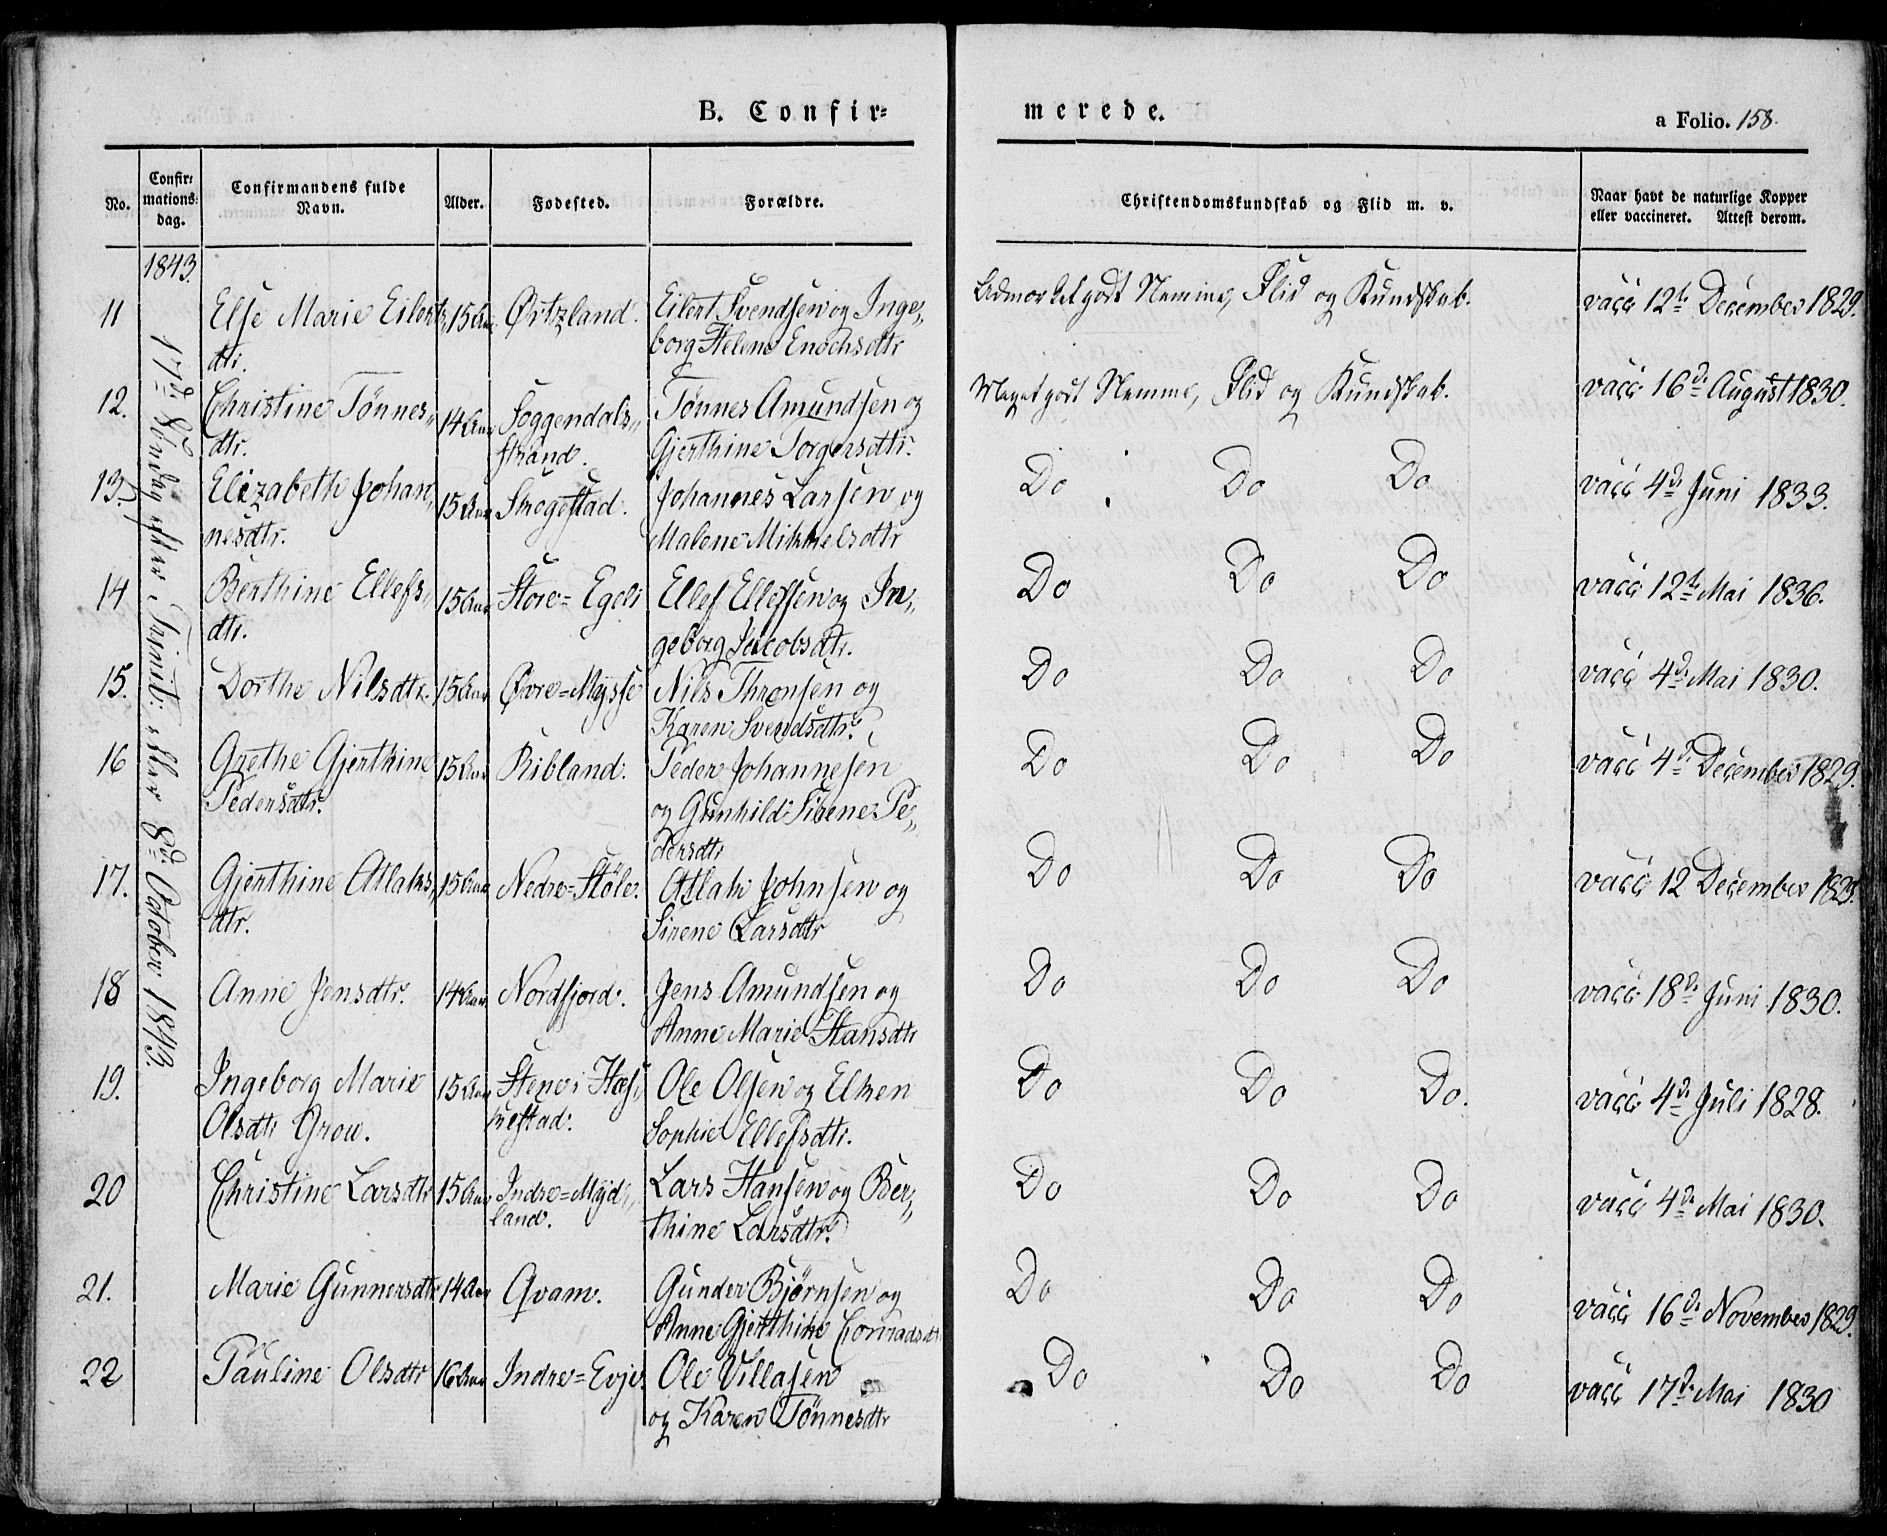 B. Confir=
merede.
a Folio. 158.
No.
Confir=
mations=
dag.
Confirmandens fulde
Navn.
Alder.
Fødested.
Forældre.
Christendomskundskab og Flid m. v.
Naar havt de naturlige Kopper
eller vaccineret. Attest derom.
1843.
17d: Søndag efter Trinit: eller 8d: October 1843.
11 Else Marie Eilerts 15 Aar Ørtzland. Eilert Svendsen og Inge„ Udmærket godt Nemme, Flid og Kundskab. vacc 12te December 1829.
dtr. borg Helene Enochsdtr
12. Christine Tønnes„ 14 Aar Soggendals„ Tønnes Amundsen og Meget godt Nemme, Flid og Kundskab. vacc 16d: August 1830.
dtr. strand. Gjerthine Torgersdtr.
13. Elizabeth Johan„ 15 Aar Skogestad. Johannes Larsen og Do Do Do vacc 4d: Juni 1833.
nesdtr. Malene Mikkelsdtr
14 Berthine Ellefs„ 15 Aar Store=Egeli Ellef Ellefsen og In„ Do Do Do vacc 12te Mai 1836.
dtr. geborg Jacobsdtr.
15. Dorthe Nilsdtr. 15 Aar Øvre=Mysse Nils Thronsen og Do Do Do vacc 4d: Mai 1830.
Karen Svendsdtr.
16 Grethe Gjerthine 15 Aar Ribland. Peder Johannesen Do Do Do vacc 4d: December 1829.
Pedersdtr. og Gunhild Sirene Pe„
dersdtr
17. Gjerthine Atlaks„ 15 Aar Nedre=Støle. Atlak Johnsen og Do Do Do vacc 12 December 1829.
dtr. Sirene Larsdtr
18 Anne Jensdtr. 14 Aar Nordfjord. Jens Amundsen og Do Do Do vacc 18d: Juni 1830.
Anne Marie Hansdtr
19. Ingeborg Marie 15 Aar Stene i Hæs„ Ole Olsen og Elken Do Do Do. vacc 4d: Juli 1828.
Olsdtr Grow. kestad. Sophie Ellefsdtr.
20 Christine Larsdtr 15 Aar Indre=Myd„ Lars Hansen og Ber„ Do Do Do vacc 4d: Mai 1830.
land. thine Larsdtr.
21. Marie Gunnersdtr 14 Aar Qvam. Gunder Bjørnsen og Do Do Do vacc 16d: November 1829.
Anne Gjerthine Conradsdt
22 Pauline Olsdtr 16 Aar Indre=Evje. Ole Villasen Do Do Do vacc 17d: Mai 1830
og Karen Tønnesdtr